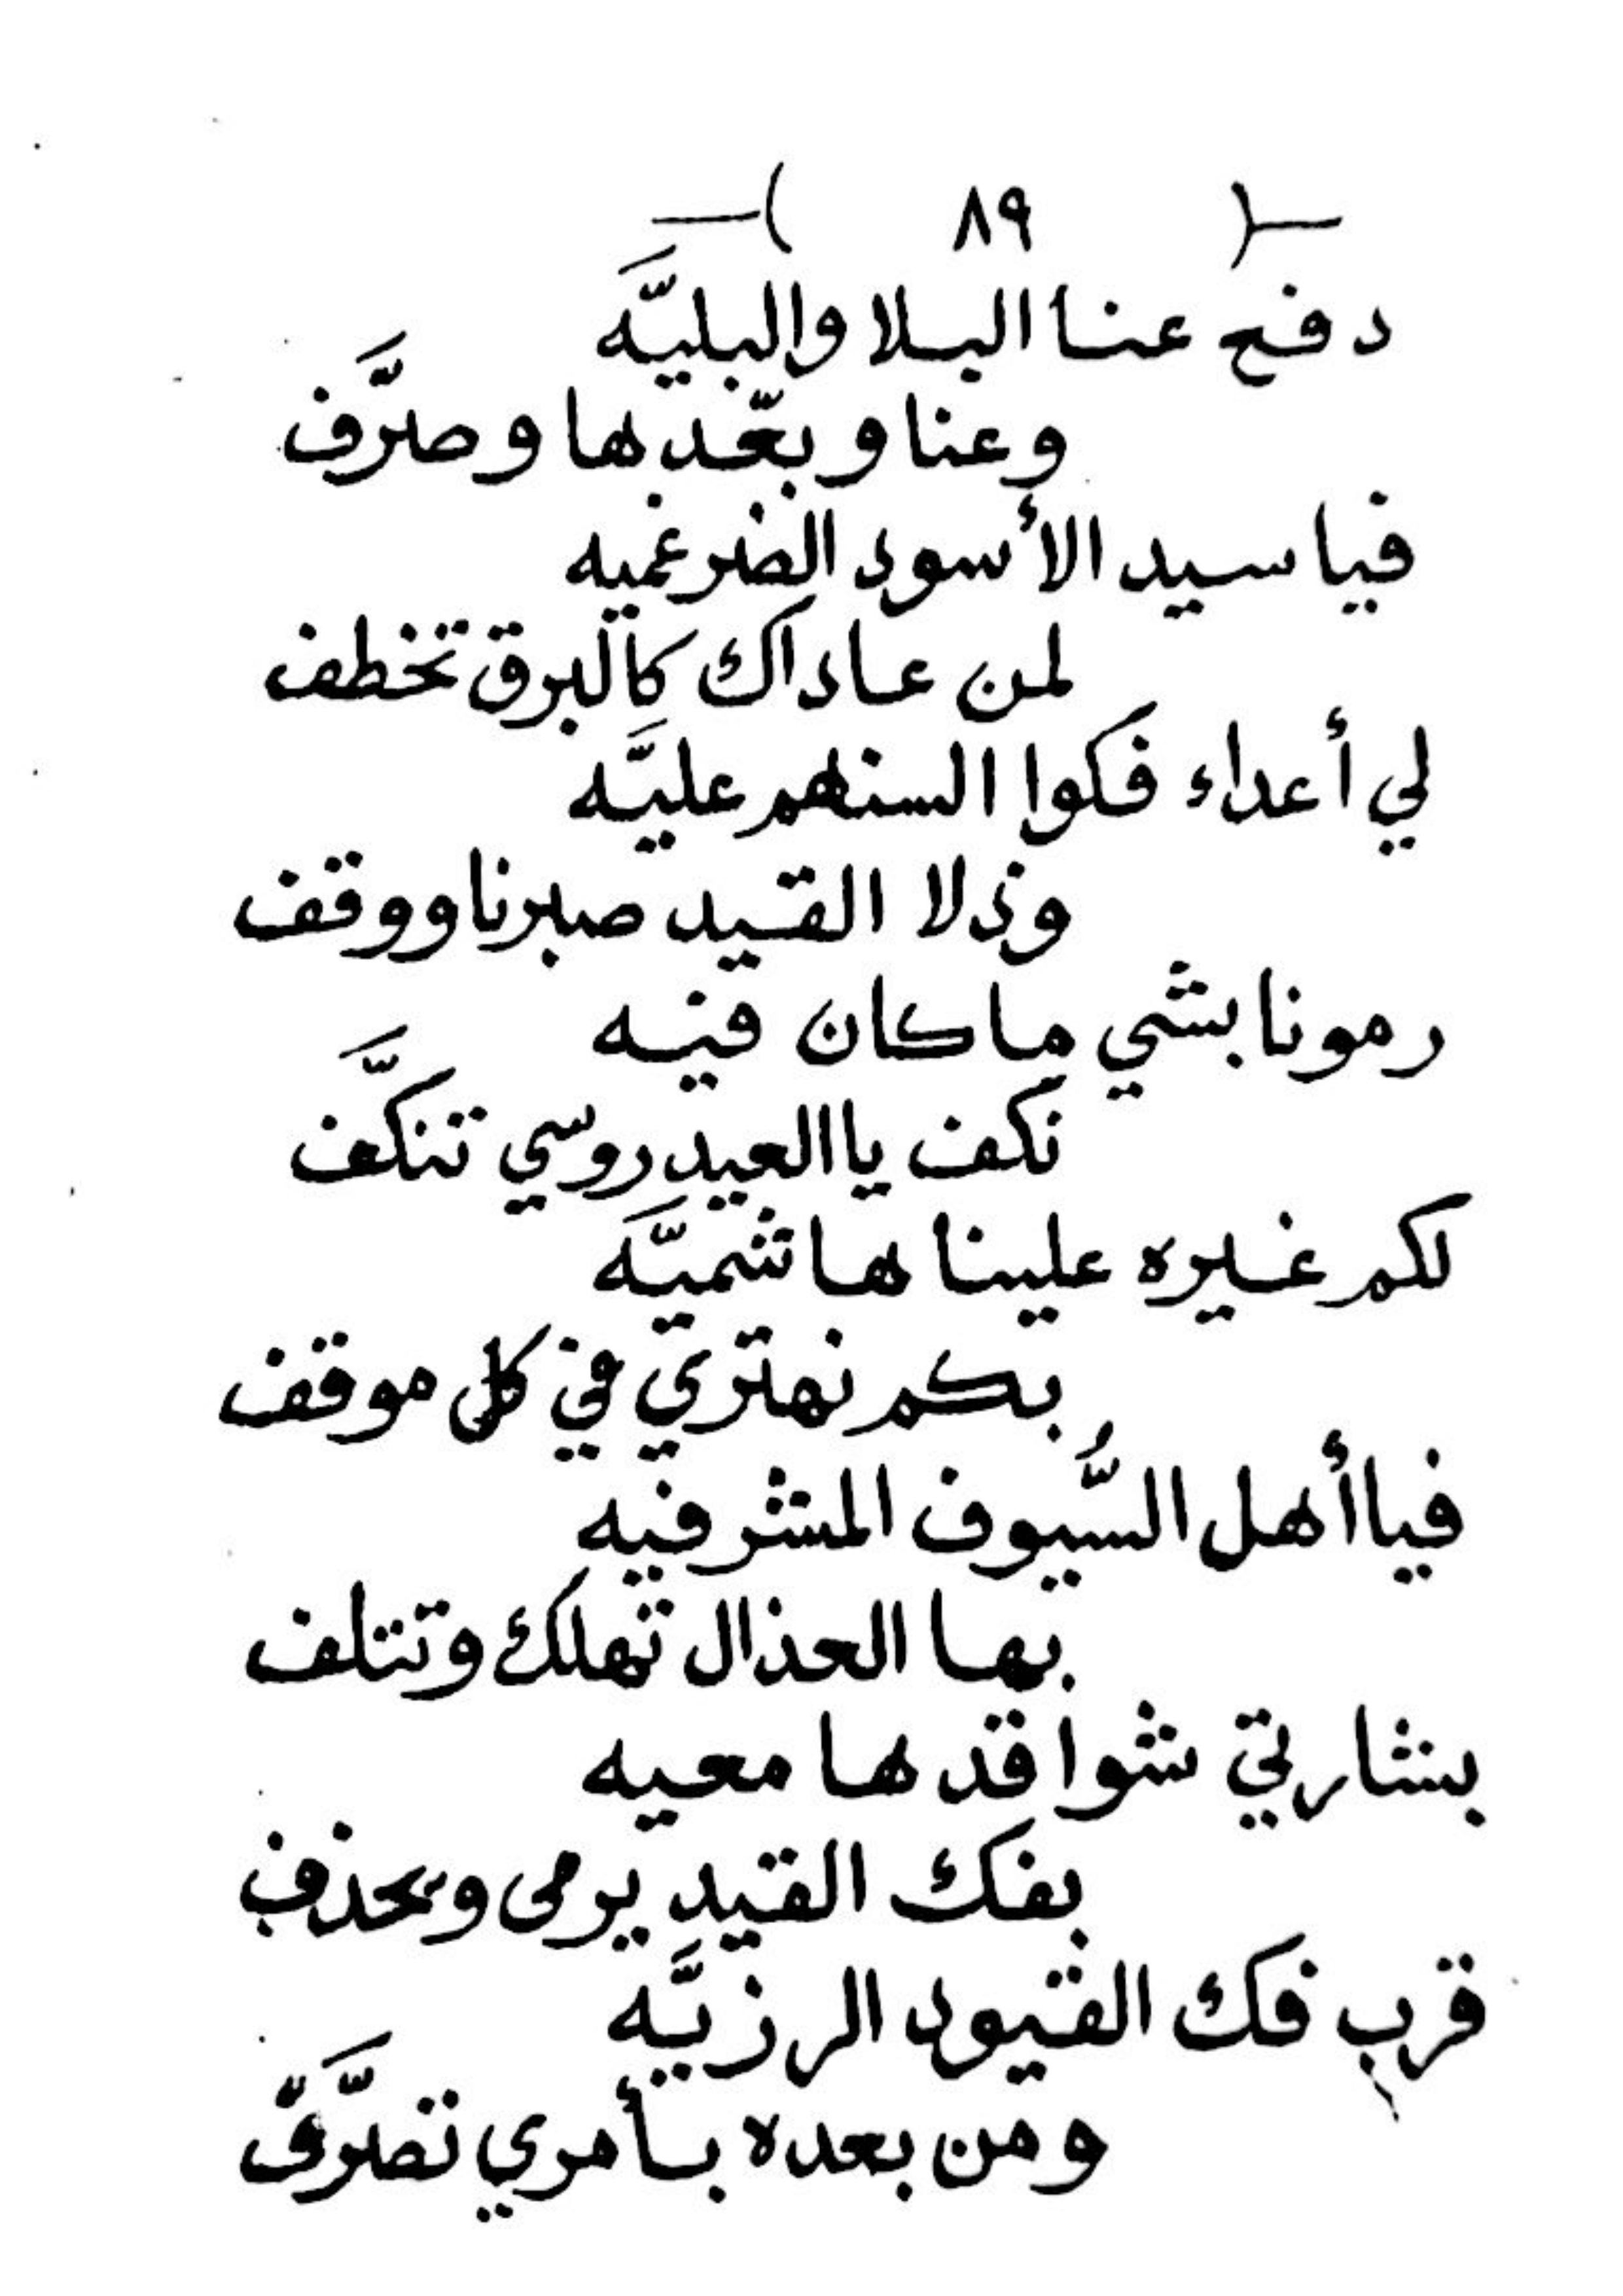 —( ٨٩ )—
دفع عنا البلا والبليَّه
وعنا وبعّدها وصرَّف
فيا سيد الأسود الضرغميه
لمن عاداك كالبرق تخطف
لي أعداء فكوا السنهم عليَّه
وذلا القيد صبرنا ووقف
رمونا بشي ما كان فيه
نكف يا العيدروسي تنكَّف
لكم غيره علينا هاشميَّه
بكم نهتزي في كل موقف
فيا أهل السُّيوف المشرفيه
بها العذال تهلك وتتلف
بشارتي شوا قدها معيه
بفك القيد يرمى ويحذف
قرب فك القيود الرزيَّه
ومن بعده بأمري تصرَّف